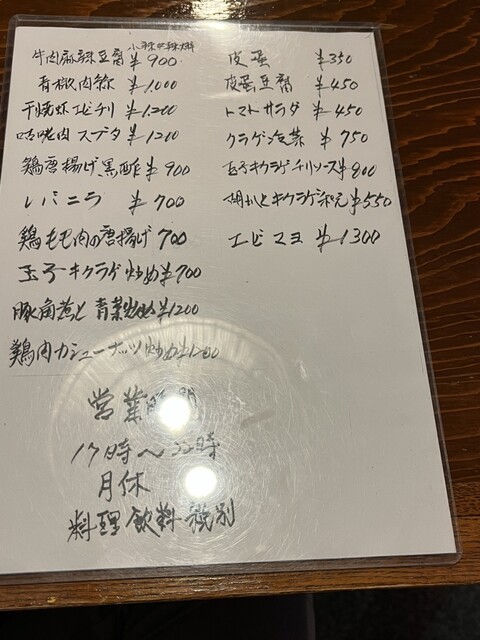 牛肉麻辣豆腐 ¥900
青椒肉絲 ¥1,000
干焼虾 エビチリ ¥1,200
咕咾肉 スブタ ¥1200
鶏唐揚げ黒酢 ¥900
レバニラ ¥700
鶏もも肉の唐揚げ 700
玉子キクラゲ炒め ¥700
豚角煮と青菜炒め ¥1200
鶏肉カシューナッツ炒め ¥1200
皮蛋 ¥350
皮蛋豆腐 ¥450
トマトサラダ ¥450
クラゲ冷菜 ¥750
玉子キクラゲチリソース ¥800
キクラゲ和え ¥550
エビマヨ ¥1300
営業時間
17時～22時
月休
料理飲料 別